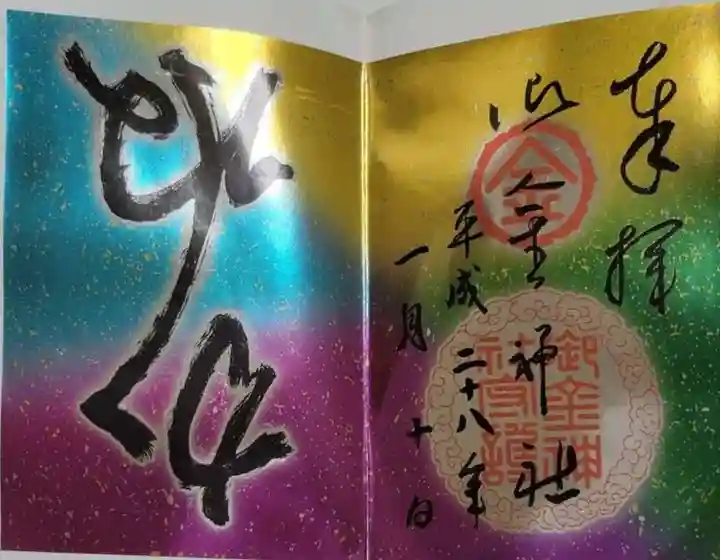 奉拝
御金神社
平成二十八年
一月十日
金
御金神
社守護